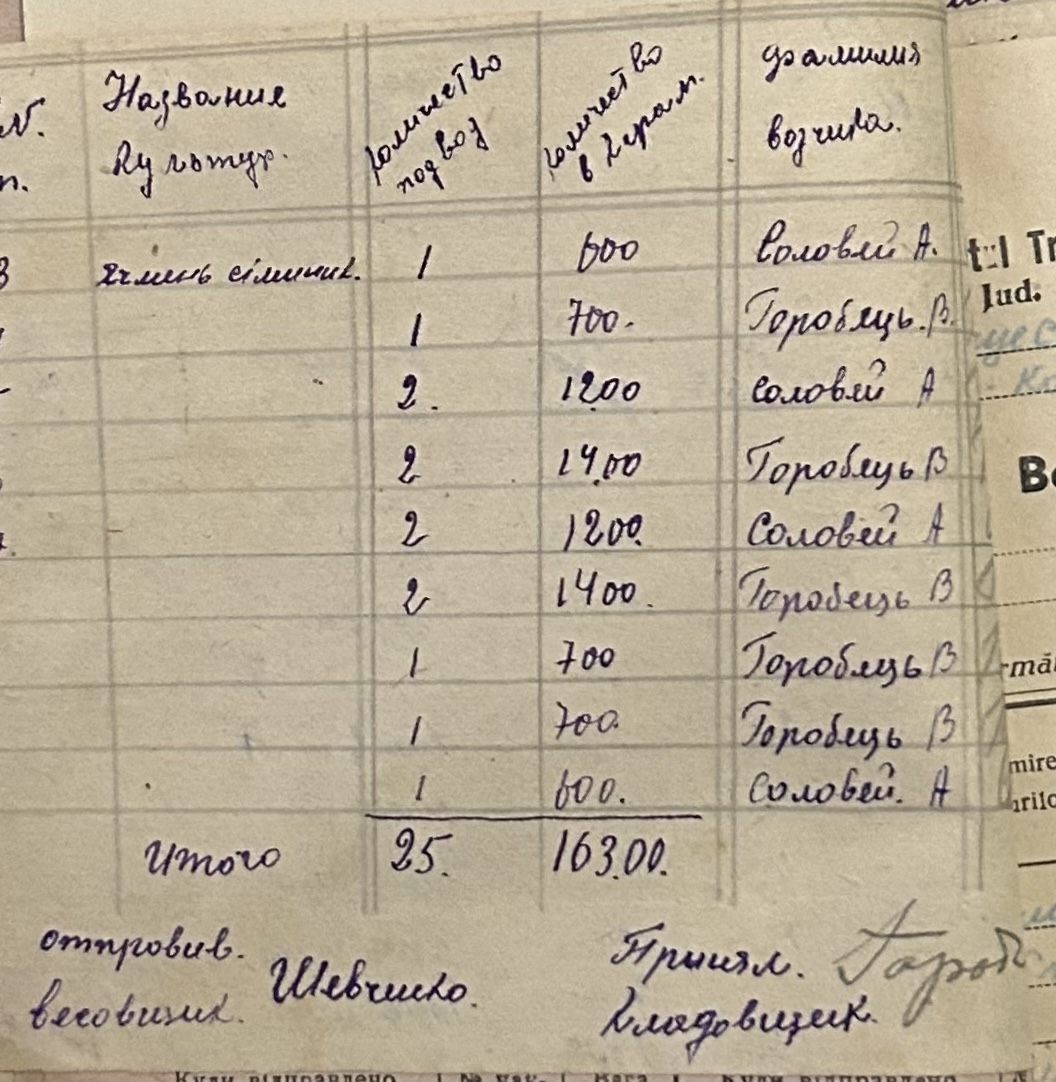 №.
п.
Название
Культур.
количество
подвод
количество
в Кграм.
фамилия
возчика.
3 ячмень сіминик. 1 600 Соловей А.
1 700. Горобяць. В.
2. 1200 Соловей А
2 1400 Горобяць В
2 1200. Соловей А
2 1400. Горобець В
1 700 Горобяць В
1 700. Горобяць В
1 600. Соловей. А
Итого 25. 16300.
отпровив. Шевченко. Принял. Гороб
весовщик. Кладовщик.
Jud.
Куди відправлено № нак. Вага Куди відправлено